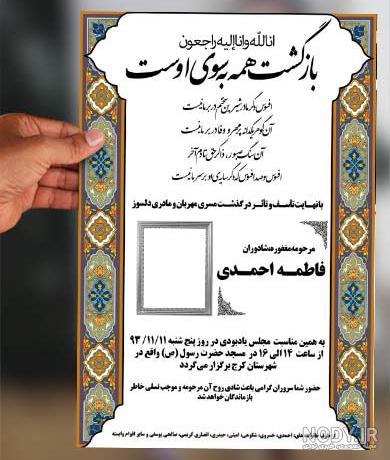 انا لله و انا الیه راجعون
بازگشت همه به سوی اوست
افسوس که مادر شیرین سخنم در بر ما نیست
آن گوهر یکدانه پر مهر و وفا در بر ما نیست
آن سنگ صبور، ذاکر حق تا دم آخر
افسوس و صد افسوس که دگر سایه ی او بر سر ما نیست
با نهایت تأسف و تأثر درگذشت مسری مهربان و مادری دلسوز
مرحومه مغفوره شادوران
فاطمه احمدی
به همین مناسبت مجلس یادبودی در روز پنج شنبه ۹۳/۱۱/۱۱
از ساعت ۱۴ الی ۱۶ در مسجد حضرت رسول (ص) واقع در
شهرستان کرج برگزار می گردد
حضور شما سروران گرامی باعث شادی روح آن مرحومه و موجب تسلی خاطر
بازماندگان خواهد شد
احمدی، خسروی، شکوهی، امینی، حیدری، انصاری کریمی، صالحی یوسفی و سایر اقوام وابسته
NODY.IR